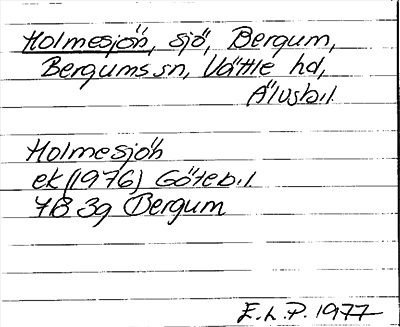 Holmesjön, sjö, Bergum,
Bergums sn, Vättle hd,
Älvsb.l.
Holmesjön
ek (1976) Göteb.l.
7B 3g Bergum
E.L.P. 1977